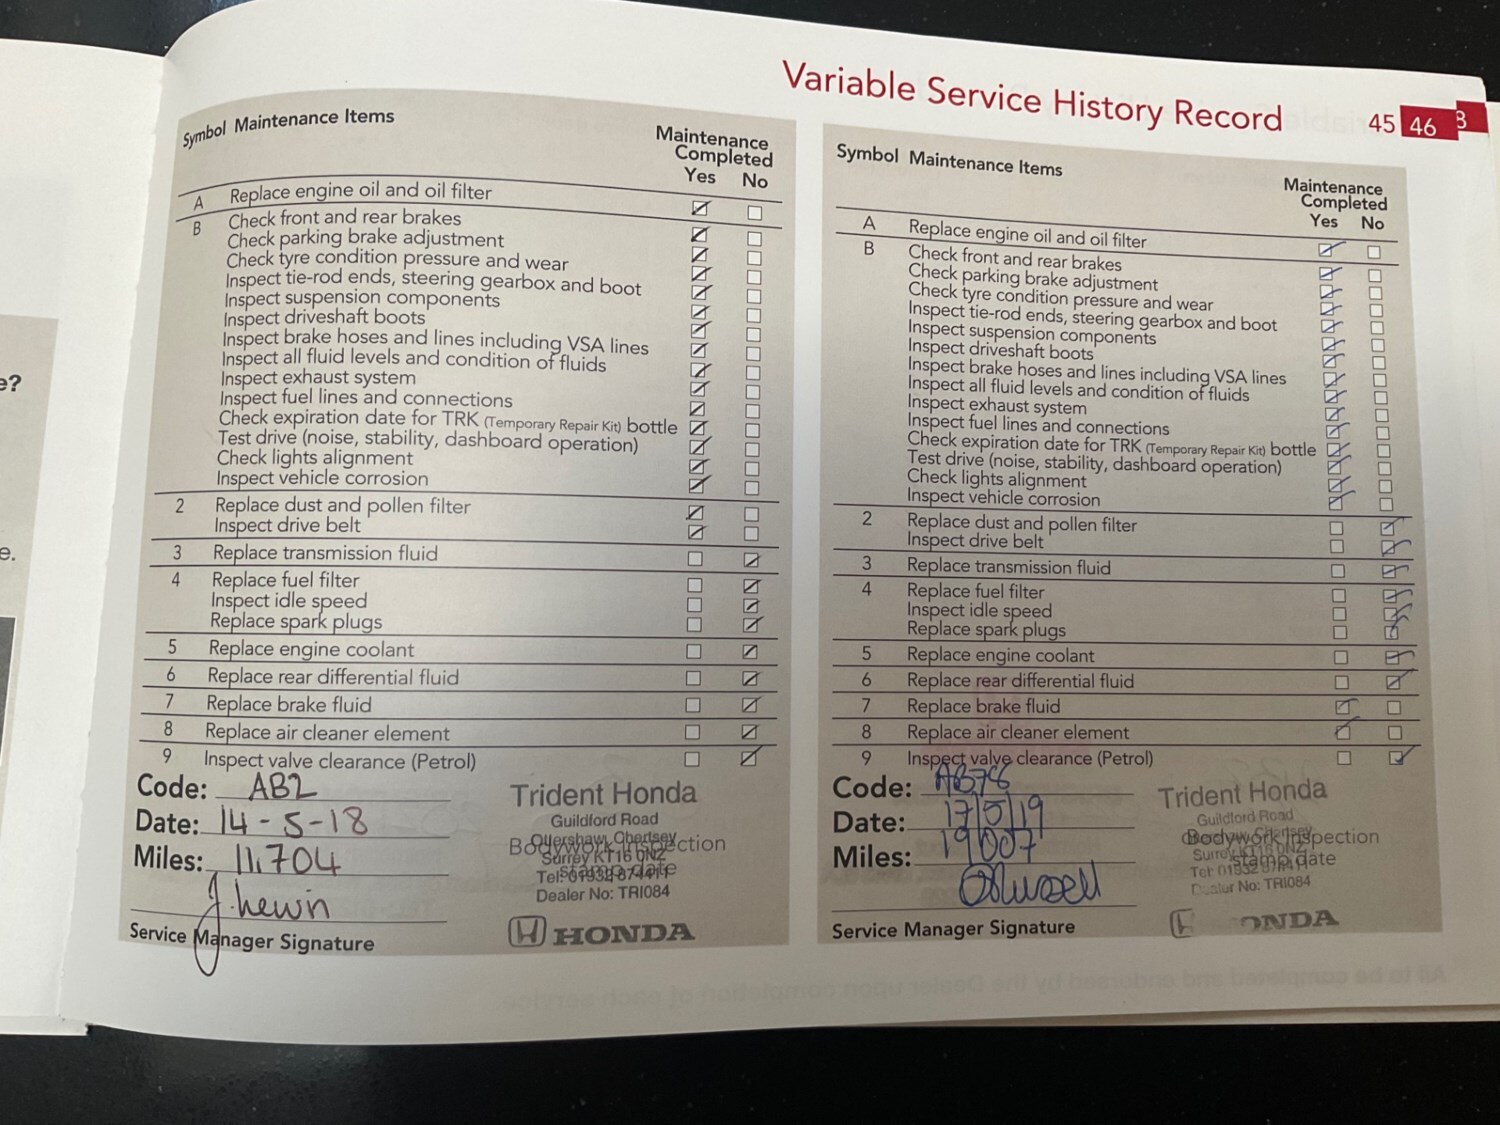 e?
e.
Variable Service History Record
45 46
Symbol Maintenance Items
Maintenance
Completed
Yes No
A Replace engine oil and oil filter
B Check front and rear brakes
Check parking brake adjustment
Check tyre condition pressure and wear
Inspect tie-rod ends, steering gearbox and boot
Inspect suspension components
Inspect driveshaft boots
Inspect brake hoses and lines including VSA lines
Inspect all fluid levels and condition of fluids
Inspect exhaust system
Inspect fuel lines and connections
Check expiration date for TRK (Temporary Repair Kit) bottle
Test drive (noise, stability, dashboard operation)
Check lights alignment
Inspect vehicle corrosion
2 Replace dust and pollen filter
Inspect drive belt
3 Replace transmission fluid
4 Replace fuel filter
Inspect idle speed
Replace spark plugs
5 Replace engine coolant
6 Replace rear differential fluid
7 Replace brake fluid
8 Replace air cleaner element
9 Inspect valve clearance (Petrol)
Code: AB2
Date: 14-5-18
Miles: 11,704
J. Lewin
Service Manager Signature
Trident Honda
Guildford Road
Ottershaw, Chertsey
Bodywork Inspection
Surrey KT16 0NZ
stamp date
Tel: 01932 874411
Dealer No: TRI084
HONDA
Symbol Maintenance Items
Maintenance
Completed
Yes No
A Replace engine oil and oil filter
B Check front and rear brakes
Check parking brake adjustment
Check tyre condition pressure and wear
Inspect tie-rod ends, steering gearbox and boot
Inspect suspension components
Inspect driveshaft boots
Inspect brake hoses and lines including VSA lines
Inspect all fluid levels and condition of fluids
Inspect exhaust system
Inspect fuel lines and connections
Check expiration date for TRK (Temporary Repair Kit) bottle
Test drive (noise, stability, dashboard operation)
Check lights alignment
Inspect vehicle corrosion
2 Replace dust and pollen filter
Inspect drive belt
3 Replace transmission fluid
4 Replace fuel filter
Inspect idle speed
Replace spark plugs
5 Replace engine coolant
6 Replace rear differential fluid
7 Replace brake fluid
8 Replace air cleaner element
9 Inspect valve clearance (Petrol)
Code: AB78
Date: 17/5/19
Miles: 19007
Service Manager Signature
Trident Honda
Guildford Road
Bodywork Inspection
Surrey KT16 0NZ
stamp date
Tel: 01932 874411
Dealer No: TRI084
ONDA